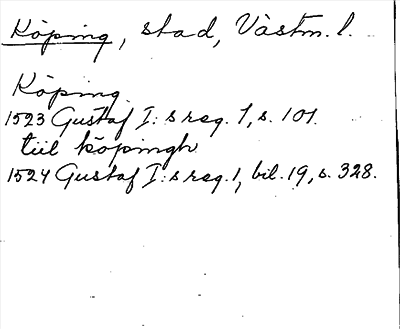 Köping, stad, Västm. l.
Köping
1523 Gustaf I:s reg. 1, s. 101.
till köpingh
1524 Gustaf I:s reg. 1, bil. 19, s. 328.